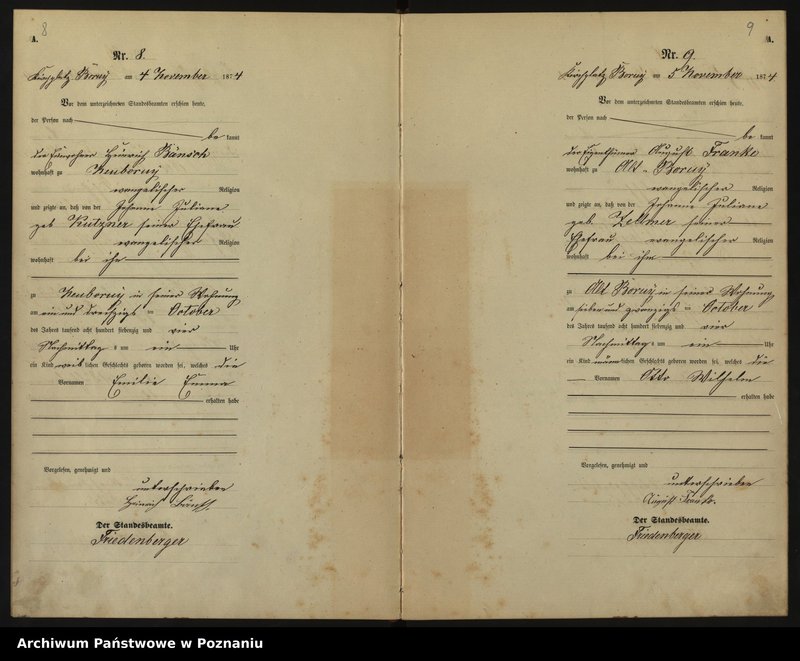 8
A.
Nr. 8.
Kirchplatz Boruy am 4 November 1874
Vor dem unterzeichneten Standesbeamten erschien heute,
der Person nach
be kannt
der Einwohner Heinrich Bänsch
wohnhaft zu Neuboruy
evangelischer Religion
und zeigte an, daß von der Johanne Juliane
geb Kutzner seiner Ehefrau
evangelischer Religion
wohnhaft bei ihm
zu Neuboruy in seiner Wohnung
am ein und dreißigs ten October
des Jahres tausend acht hundert siebenzig und vier
Nachmittag s um ein Uhr
ein Kind weib lichen Geschlechts geboren worden sei, welches die
Vornamen Emilie Emma
erhalten habe
Vorgelesen, genehmigt und
unterschrieben
Heinrich Bänsch
Der Standesbeamte.
Friedenberger
9
A.
Nr. 9.
Kirchplatz Boruy am 5 November 1874
Vor dem unterzeichneten Standesbeamten erschien heute,
der Person nach
be kannt
der Eigenthümer August Franke
wohnhaft zu Alt-Boruy
evangelischer Religion
und zeigte an, daß von der Johanne Juliane
geb. Zellmer seiner
Ehefrau evangelischer Religion
wohnhaft bei ihm
zu Alt Boruy in seiner Wohnung
am sieben und zwanzigs ten October
des Jahres tausend acht hundert siebenzig und vier
Nachmittag s um ein Uhr
ein Kind männ lichen Geschlechts geboren worden sei, welches die
Vornamen Otto Wilhelm
erhalten habe
Vorgelesen, genehmigt und
unterschrieben
August Franke.
Der Standesbeamte.
Friedenberger
Archiwum Państwowe w Poznaniu